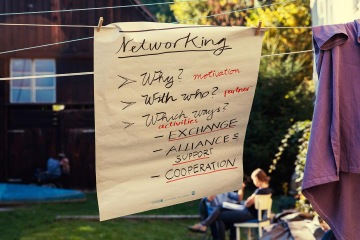 Networking
> Why? motivation
> With who? partner
> Which ways?
activities
- EXCHANGE
- ALLIANCES
SUPPORT
- COOPERATION